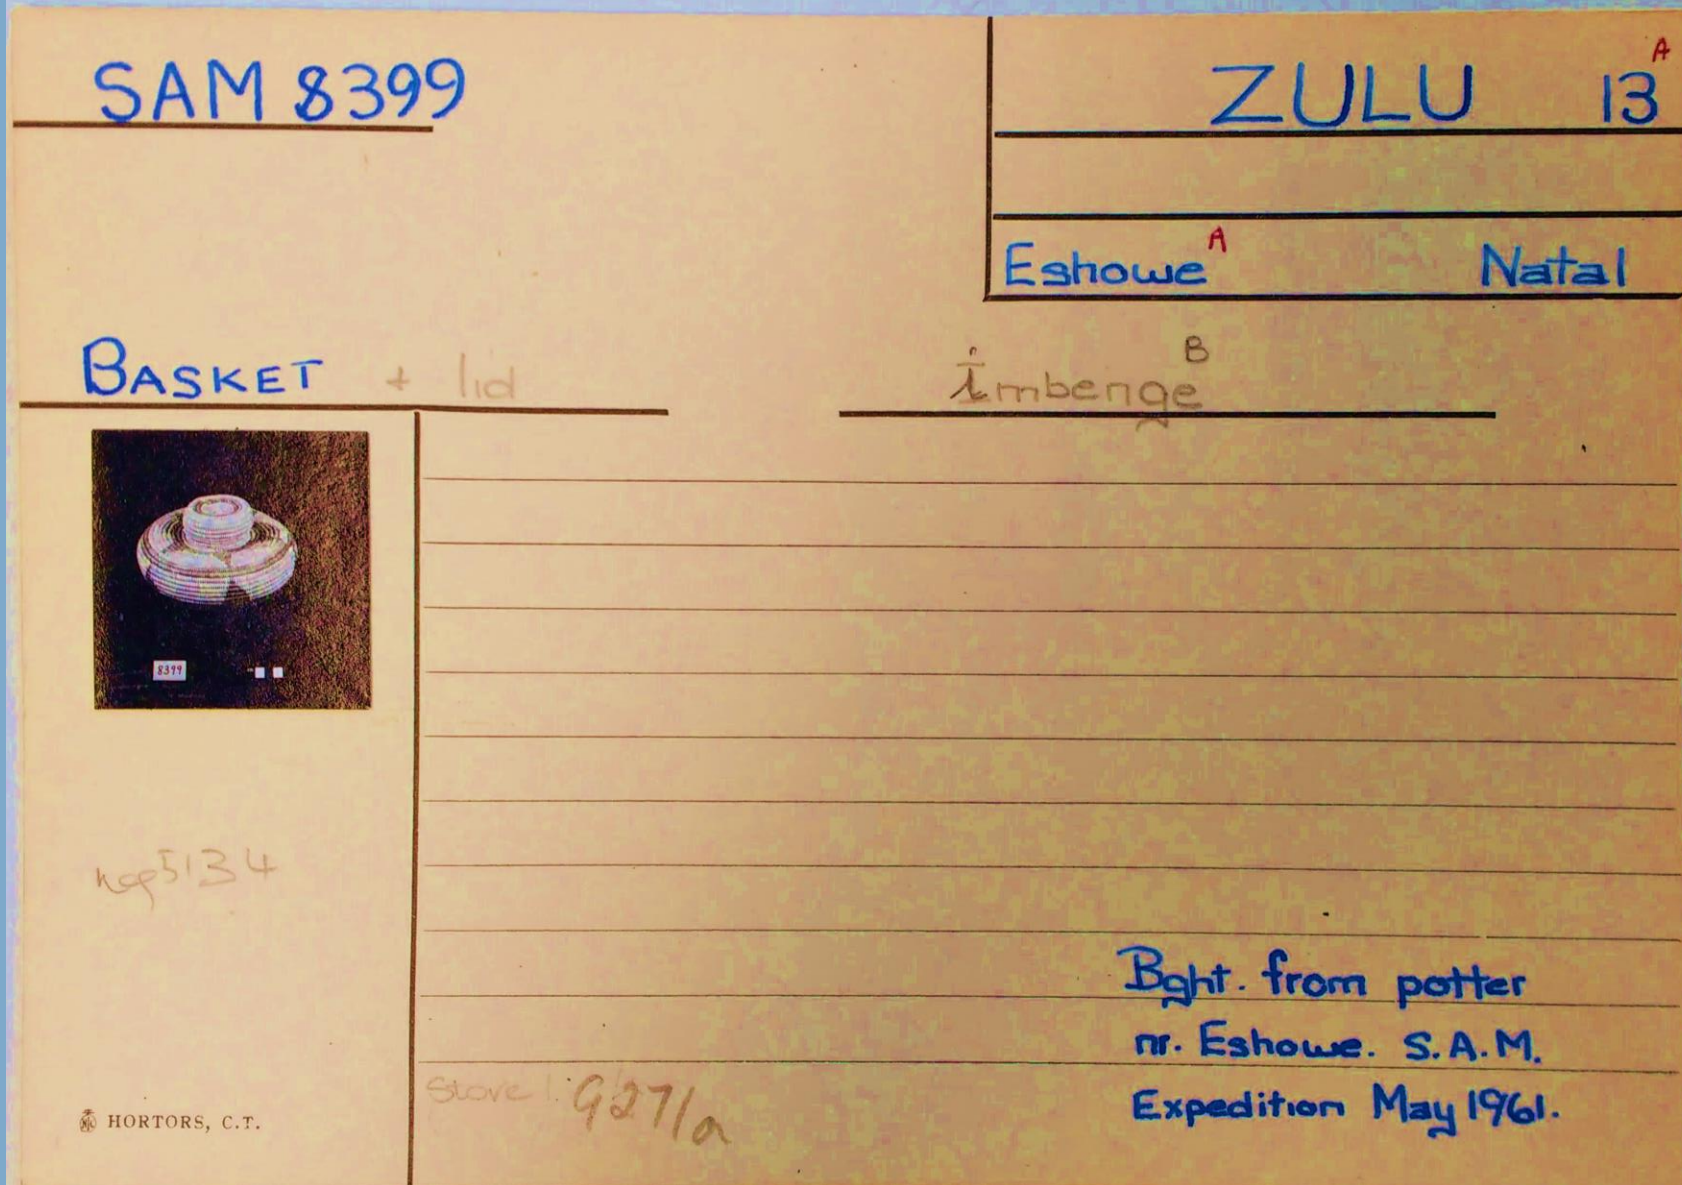 SAM 8399
ZULU 13 A
Eshowe A Natal
BASKET + lid
imbenge B
8399
neg 5134
Bght. from potter
nr. Eshowe. S.A.M.
Expedition May 1961.
Store 1: G27/a
HORTORS, C.T.